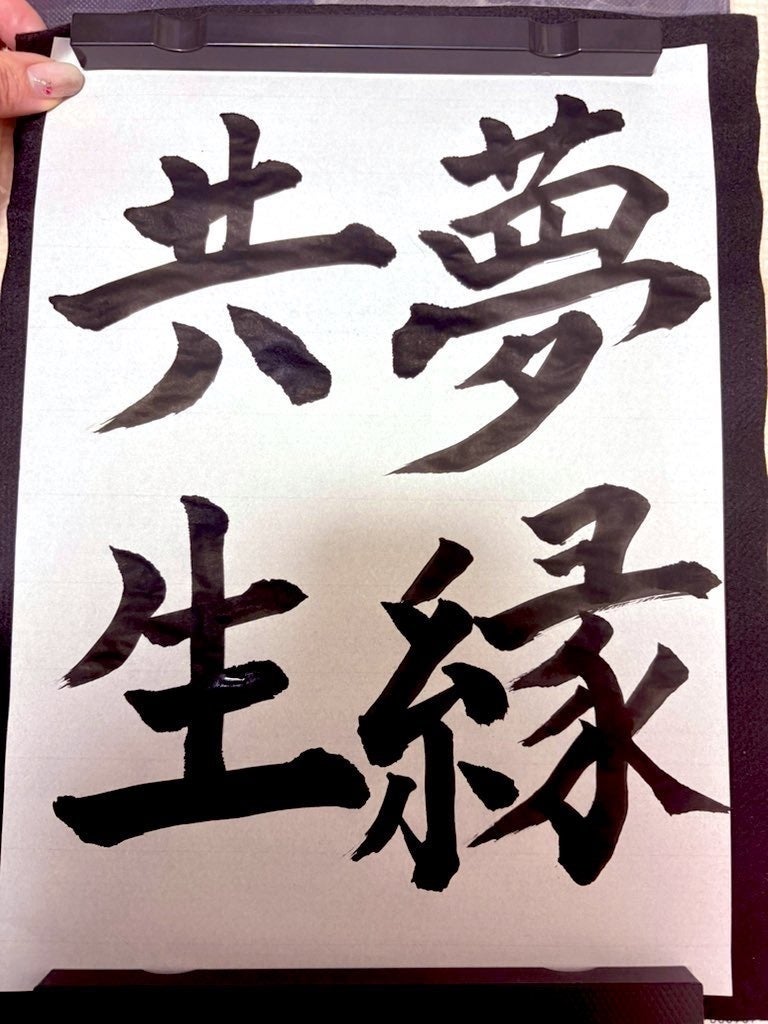 夢縁
共生